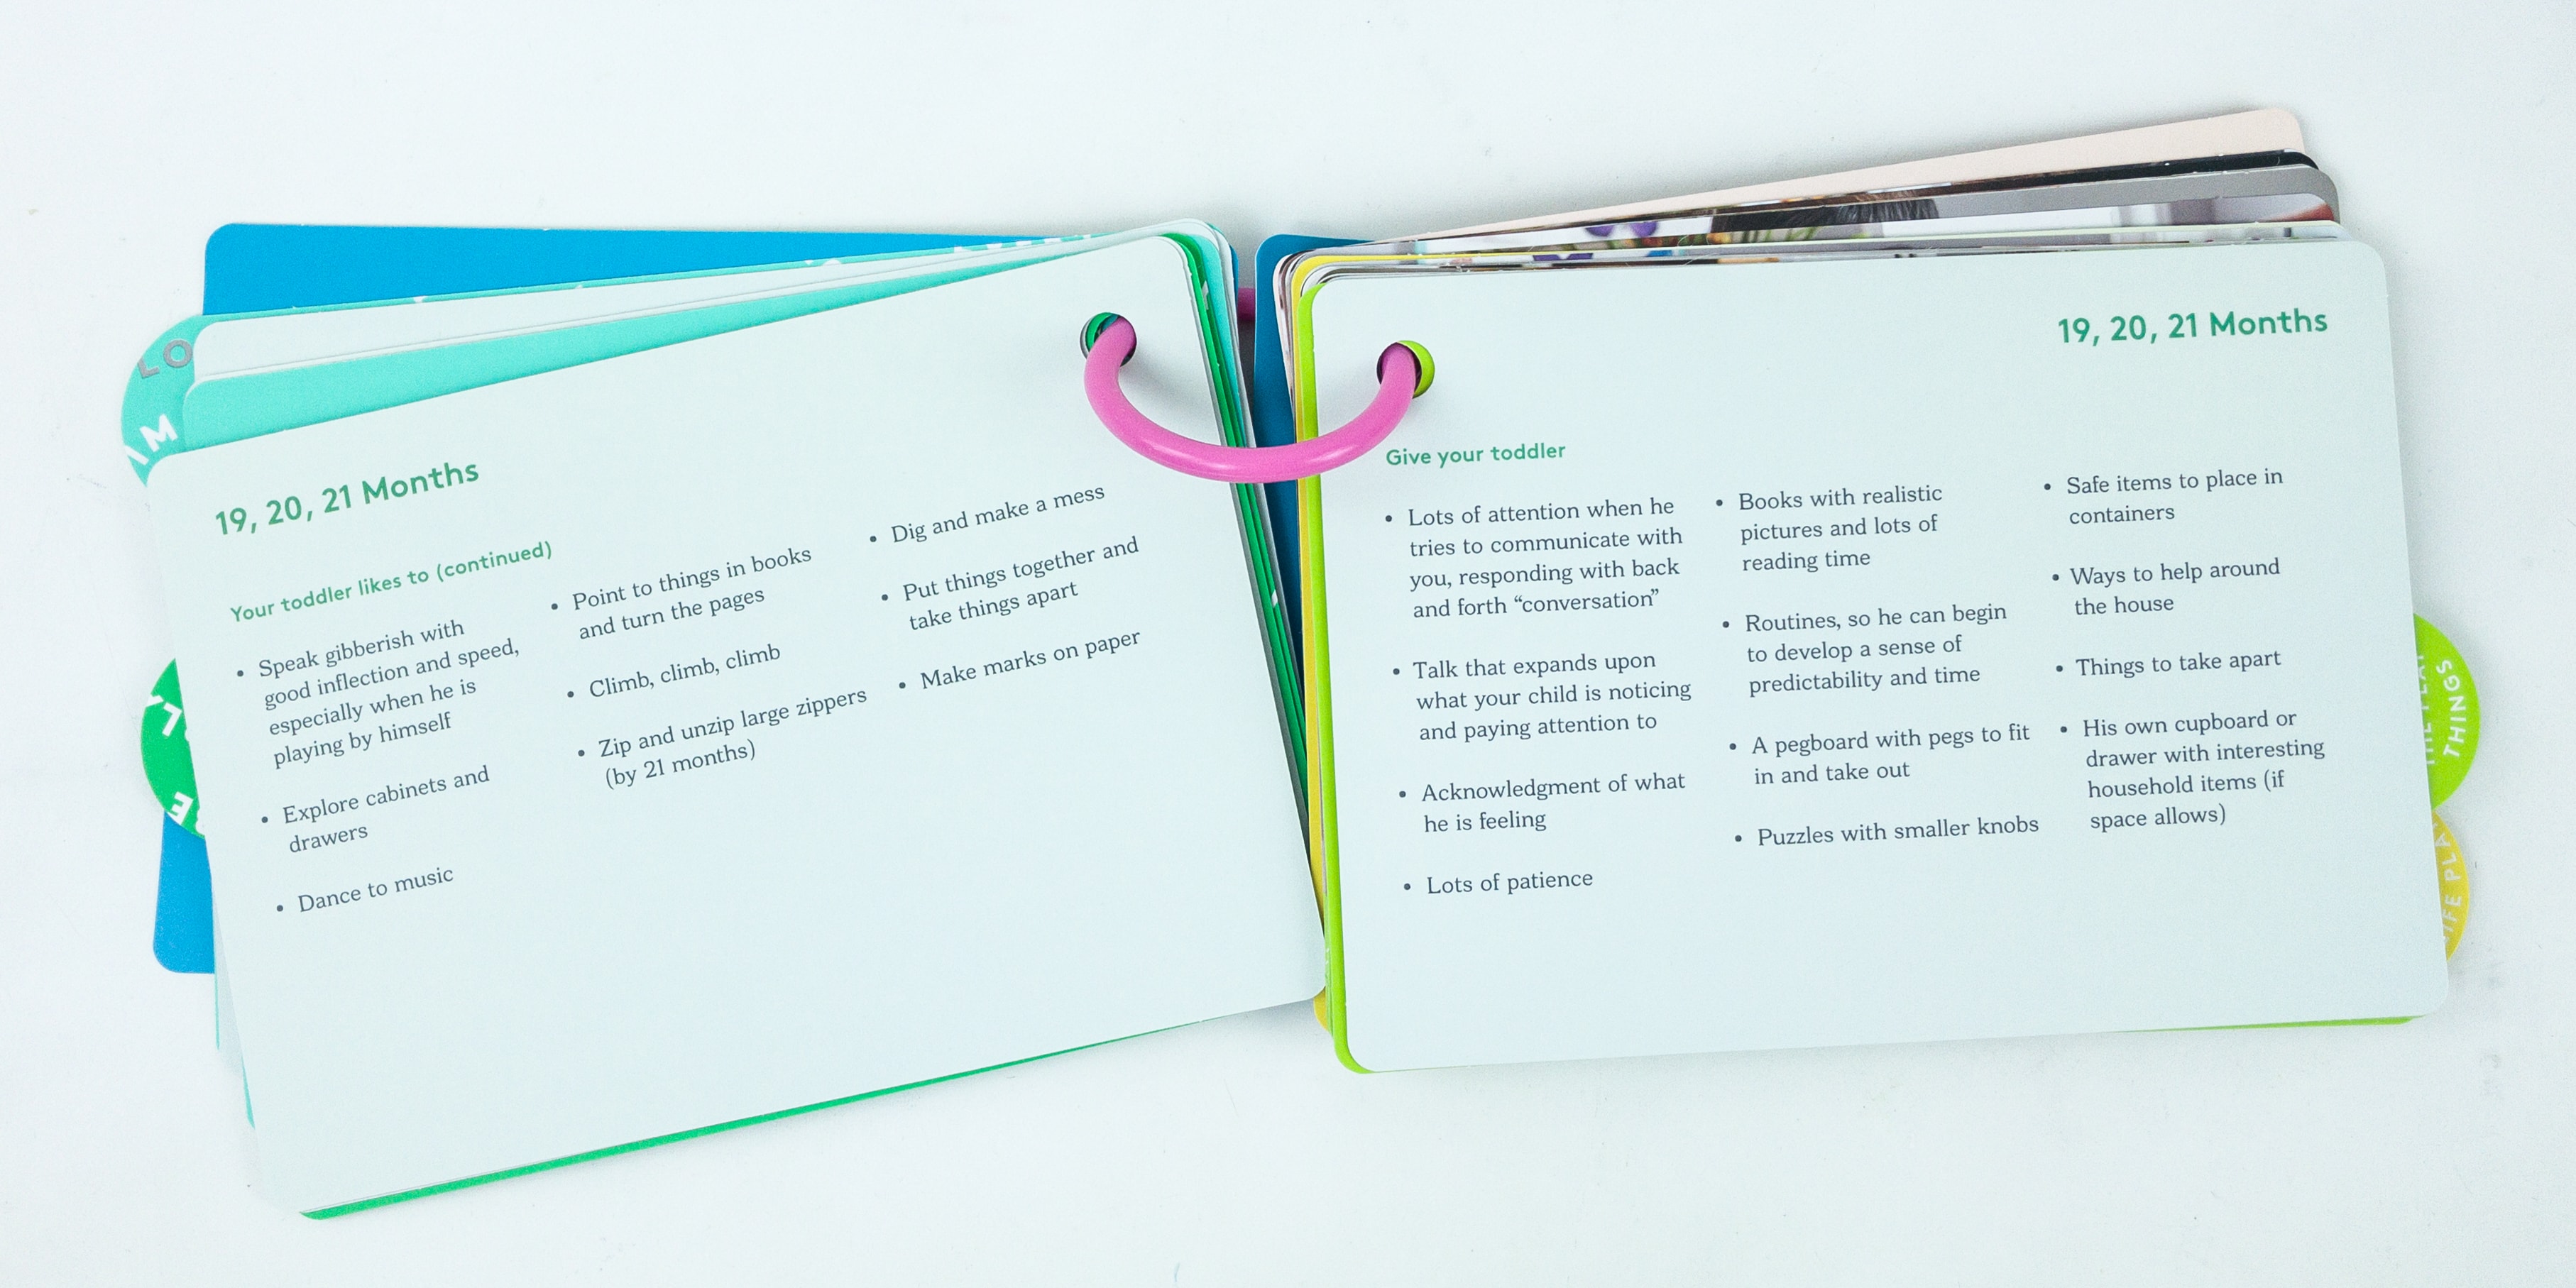 LO
AM
19, 20, 21 Months
Your toddler likes to (continued)
• Speak gibberish with
good inflection and speed,
especially when he is
playing by himself
• Explore cabinets and
drawers
• Dance to music
• Point to things in books
and turn the pages
• Climb, climb, climb
• Zip and unzip large zippers
(by 21 months)
• Dig and make a mess
• Put things together and
take things apart
• Make marks on paper
19, 20, 21 Months
Give your toddler
• Lots of attention when he
tries to communicate with
you, responding with back
and forth “conversation”
• Talk that expands upon
what your child is noticing
and paying attention to
• Acknowledgment of what
he is feeling
• Lots of patience
• Books with realistic
pictures and lots of
reading time
• Routines, so he can begin
to develop a sense of
predictability and time
• A pegboard with pegs to fit
in and take out
• Puzzles with smaller knobs
• Safe items to place in
containers
• Ways to help around
the house
• Things to take apart
• His own cupboard or
drawer with interesting
household items (if
space allows)
THINGS